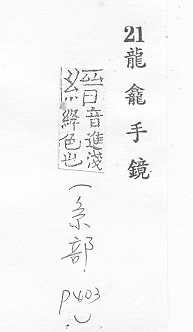 21 龍龕手鏡
縉 音進淺
絳色也
(糸部 p403)